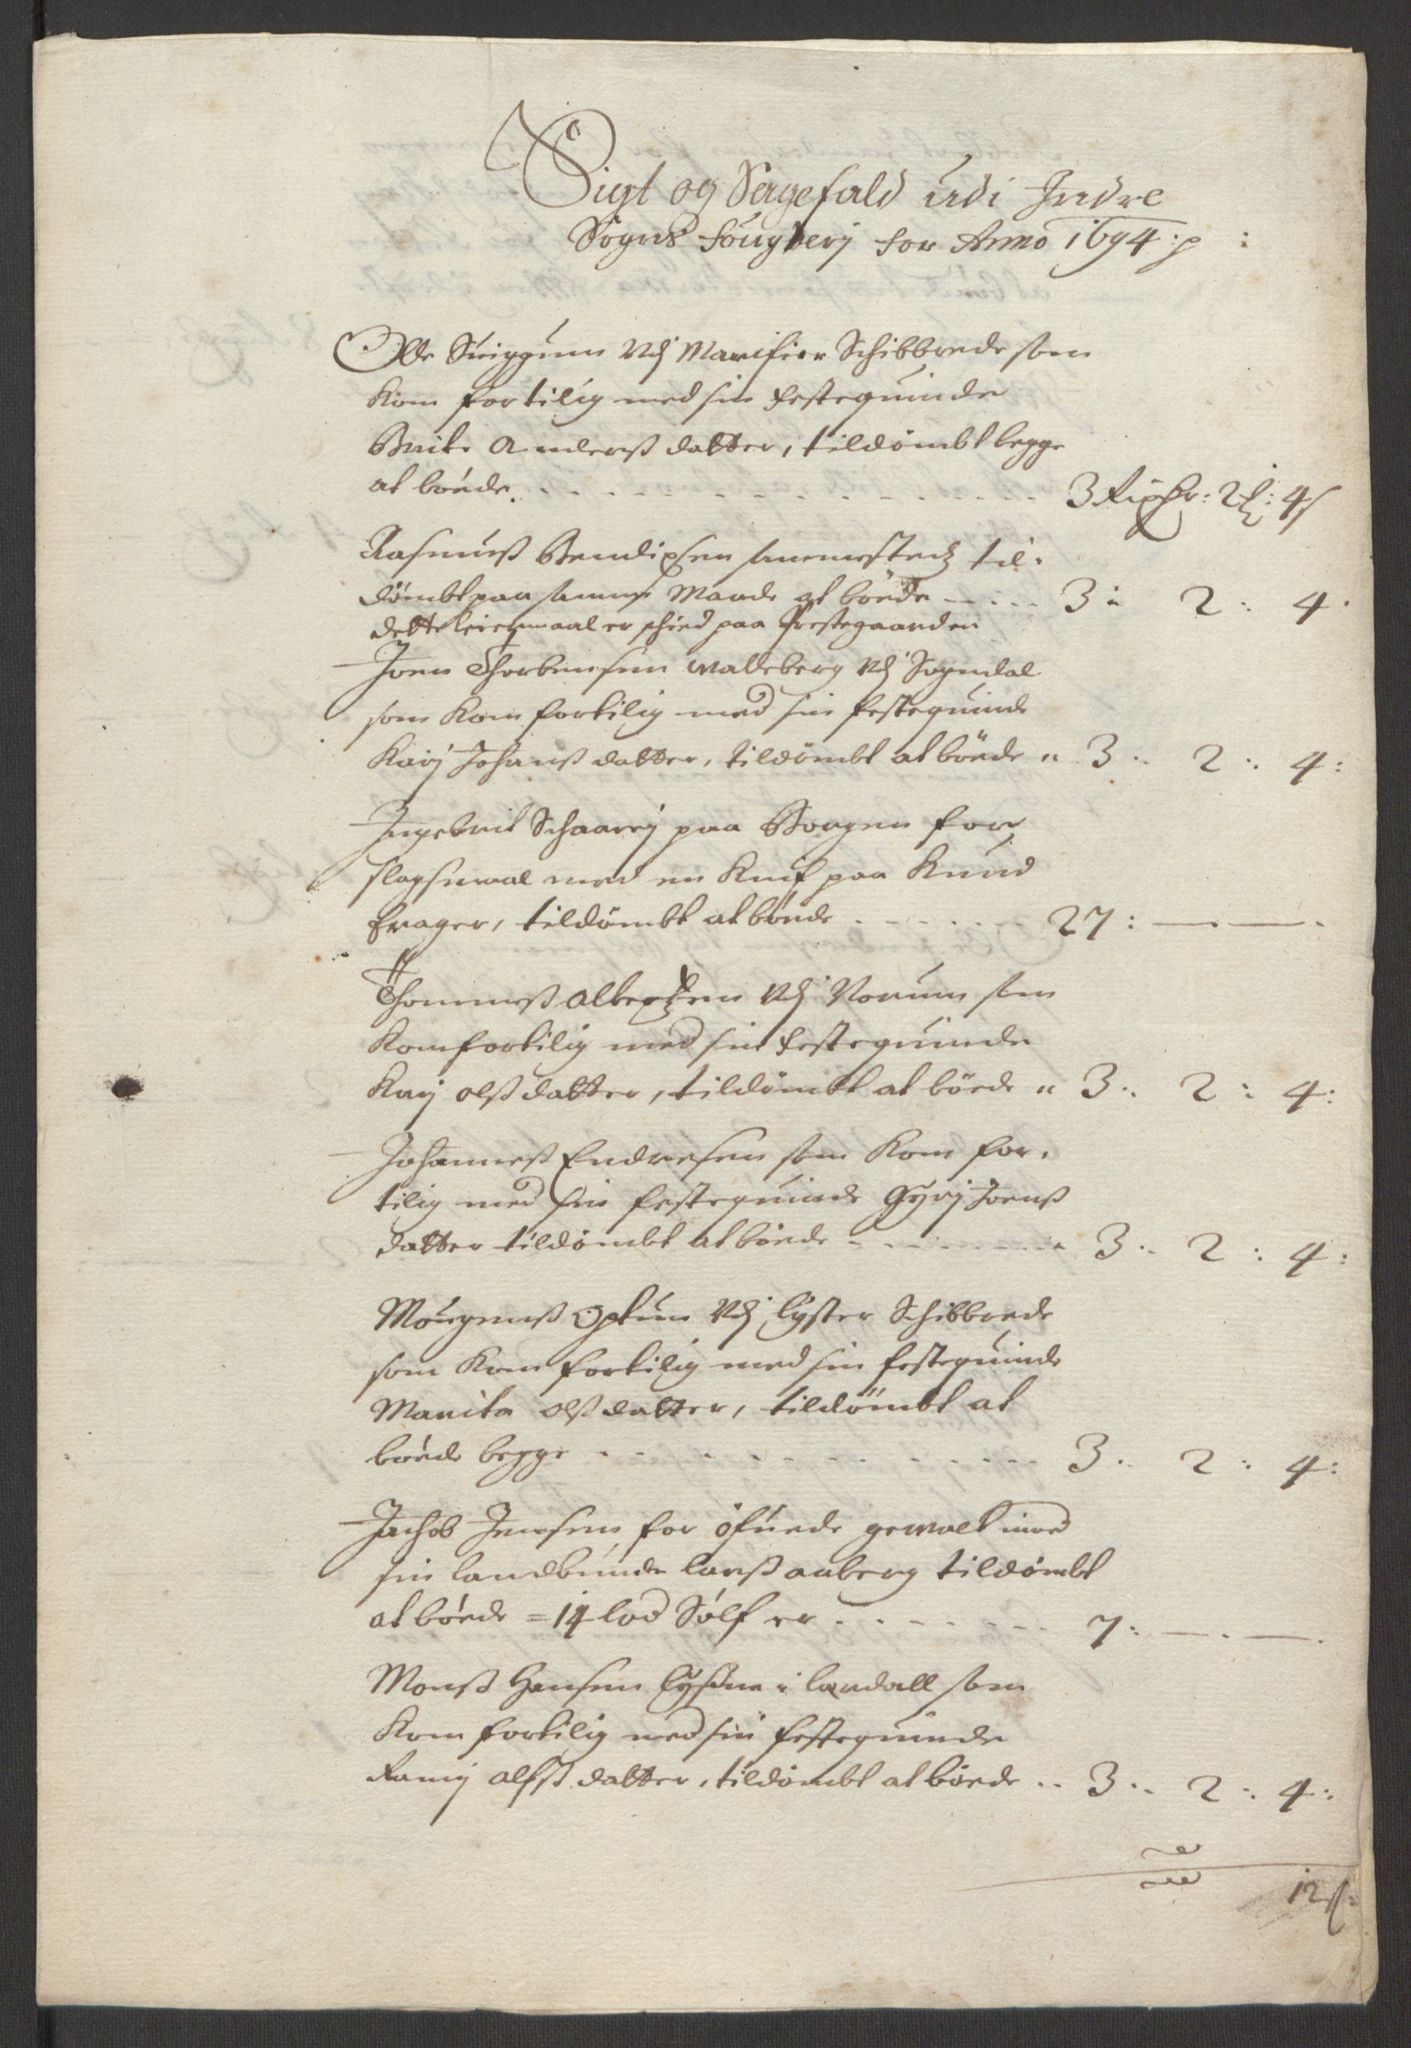 Sigt og Sagefald udi Indre
Sogns fougderj for Anno 1694 :p :
Olle Sviggum Udj Marifier Schibbrede som
kom fortilig med sin festequinde
Britte Anderß datter, tildömbt begge
at böede . . . 3 Rixdr: 2 : 4 s
Rasmuß Bendixsen sammesteds til-
dömbt paa samme Maade at böede - . . . 3 : 2 : 4 .
dette leiermaal er schied paa Prestegaarden
Joen Thorbensen walleberg Udj Sogndal
som kom fortilig med sin festequinde
Karj Johanß datter, tildömbt at böede " 3 : 2 : 4 :
Ingebrit Schaarj paa Borgen for
slagsmaal med en Knif paa Knud
Frager, tildömbt at böede . . . 27 : — —
Thommeß albertzen Udj Norum som
kom fortilig med sin festequinde
Karj olß datter, tildömbt at böede " 3 : 2 : 4 :
Johanneß Endresen som kom for-
tilig med sin festequinde Gyrj Joenß
datter tildömbt at böede - . . . 3 : 2 : 4 :
Mougenß Optun Udj Lyster Schibbrede
som kom fortilig med sin festequinde
Marita olß datter, tildömbt at
böede begge . . . 3 : 2 : 4 :
Jachob Jensen for öfuede gewalt imod
sin landbunde larß aaberg tildömbt
at böede = 14 lod Sölf er . . . 7 : — . —
Monß Hansen Lysne i lardall som
kom fortilig med sin festequinde
Ranj alfß datter, tildömbt at böede . . 3 : 2 : 4 :
12 s: